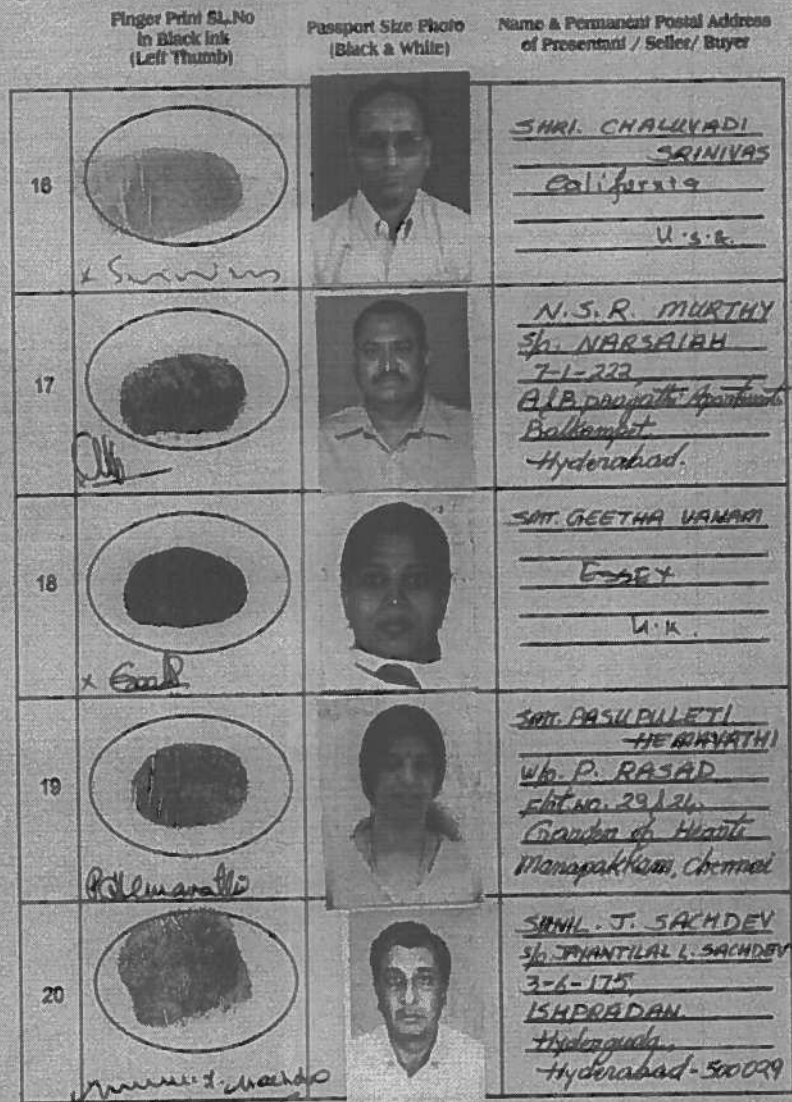 Finger Print SL.No
in Black ink
(Left Thumb)
Passport Size Photo
(Black & White)
Name & Permanent Postal Address
of Presentant / Seller/ Buyer
16
x Srinivas
SHRI. CHALUVADI
SRINIVAS
California
U.S.A.
17
N.S.R. MURTHY
S/o. NARSAIAH
7-1-222,
Apartment
Balkampet
Hyderabad.
18
x
SMT. GEETHA VANAM
ESSEX
U.K.
19
P. Hemavathi
SMT. PASUPULETI
HEMAVATHI
W/o. P. RASAD
Flat no.
Garden of
Manapakkam, Chennai
20
SUNIL. J. SACHDEV
S/o JAYANTILAL L. SACHDEV
3-6-175
ISHPRADAN
Hyderguda,
Hyderabad-500029